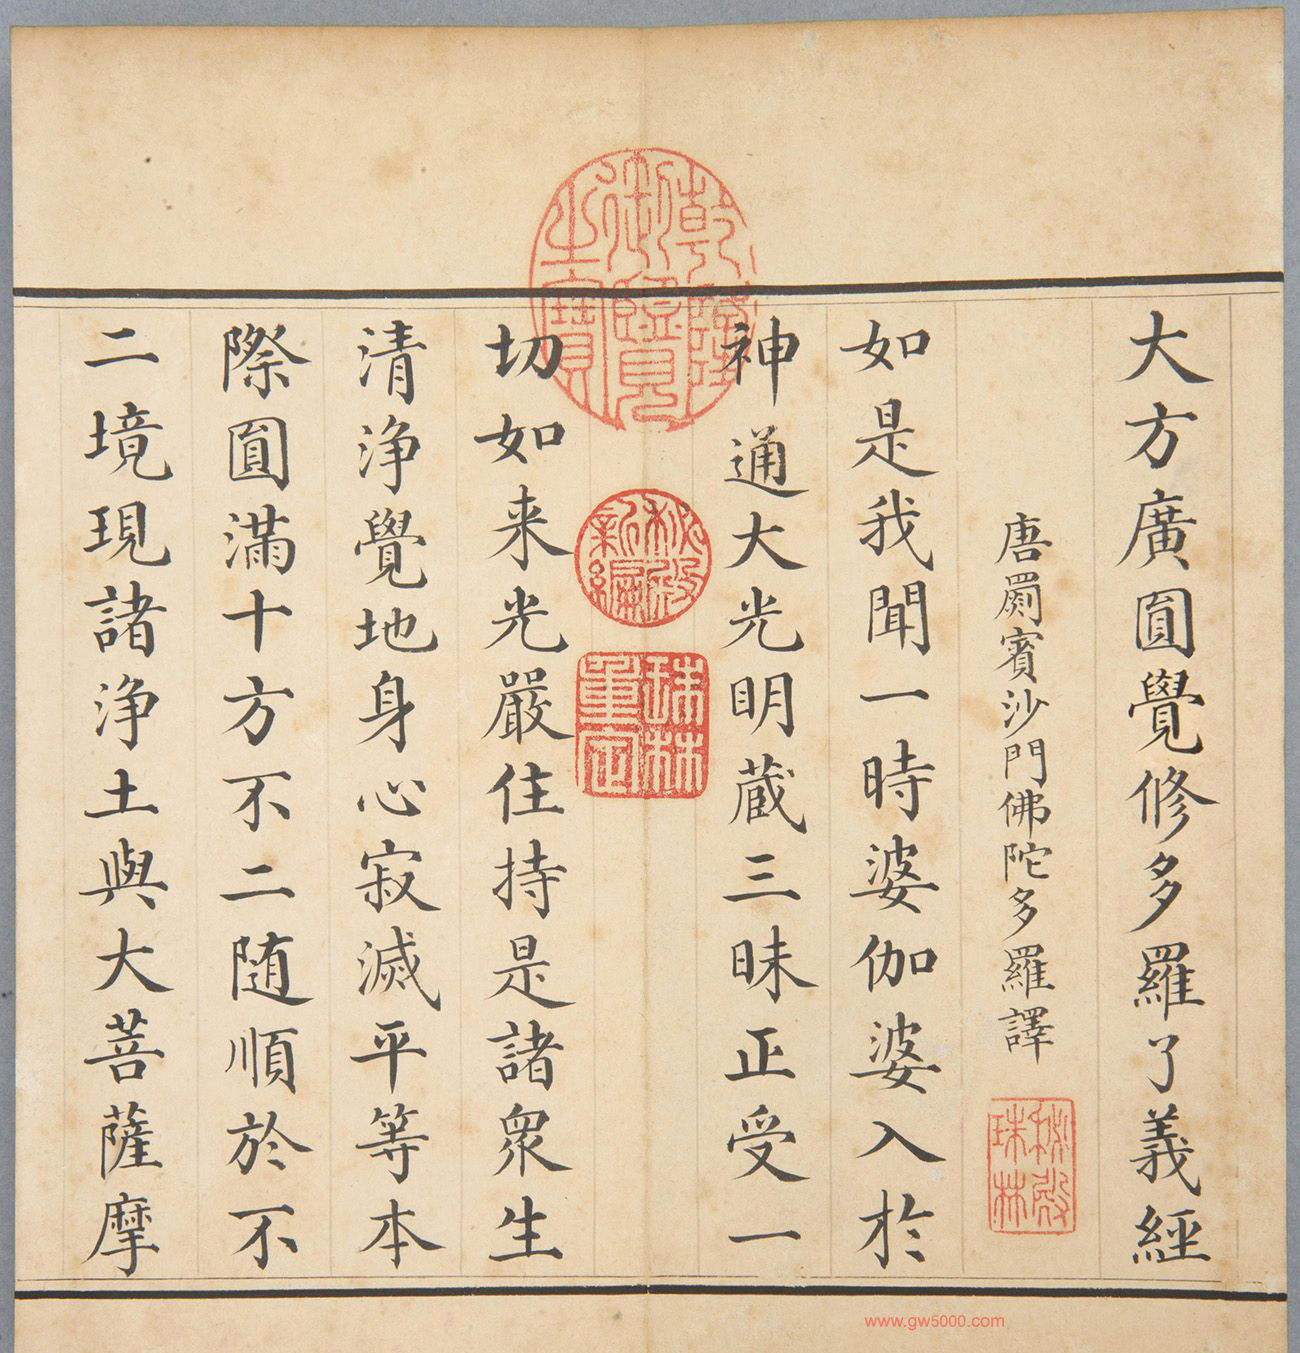 大方廣圓覺修多羅了義經
唐罽賓沙門佛陀多羅譯
如是我聞一時婆伽婆入於
神通大光明蔵三昧正受一
切如来光嚴住持是諸衆生
清浄覺地身心寂滅平等本
際圓滿十方不二随順於不
二境現諸浄土與大菩薩摩
乾隆御覽之寶
秘殿新編
珠林重定
秘殿珠林
www.gw5000.com